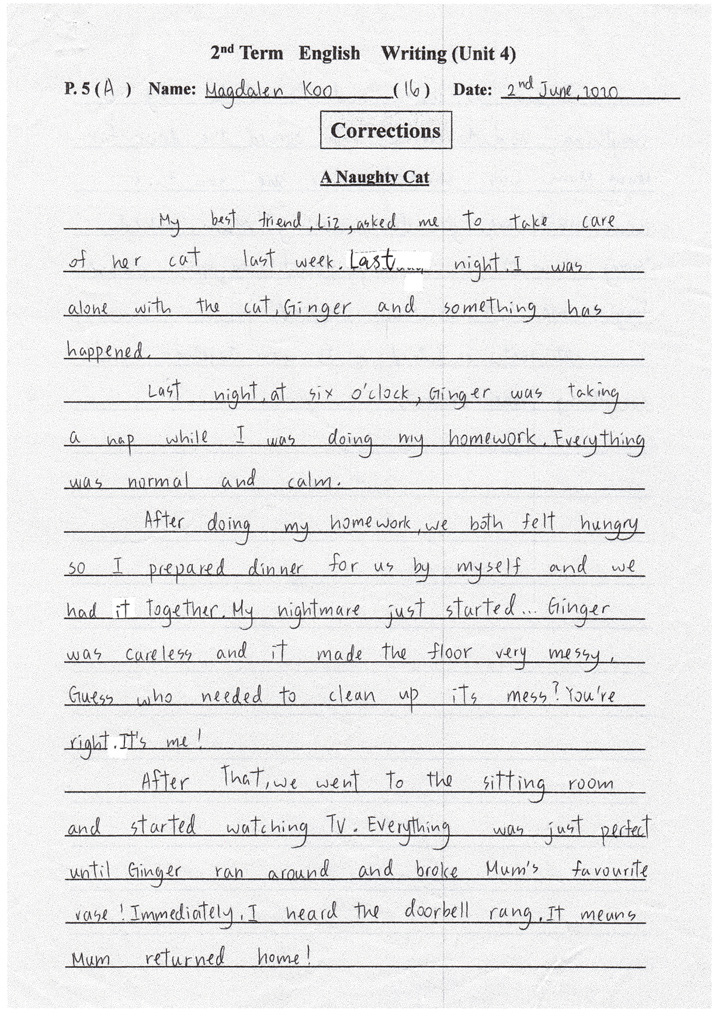 2nd Term English Writing (Unit 4)
P. 5 (A) Name: Magdalen Koo (16) Date: 2nd June, 2020
Corrections
A Naughty Cat
My best friend, Liz, asked me to take care
of her cat last week. Last night, I was
alone with the cat, Ginger and something has
happened.
Last night, at six o'clock, Ginger was taking
a nap while I was doing my homework. Everything
was normal and calm.
After doing my homework, we both felt hungry
so I prepared dinner for us by myself and we
had it together. My nightmare just started... Ginger
was careless and it made the floor very messy.
Guess who needed to clean up its mess? You're
right. It's me!
After that, we went to the sitting room
and started watching TV. Everything was just perfect
until Ginger ran around and broke Mum's favourite
vase! Immediately, I heard the doorbell rang. It means
Mum returned home!